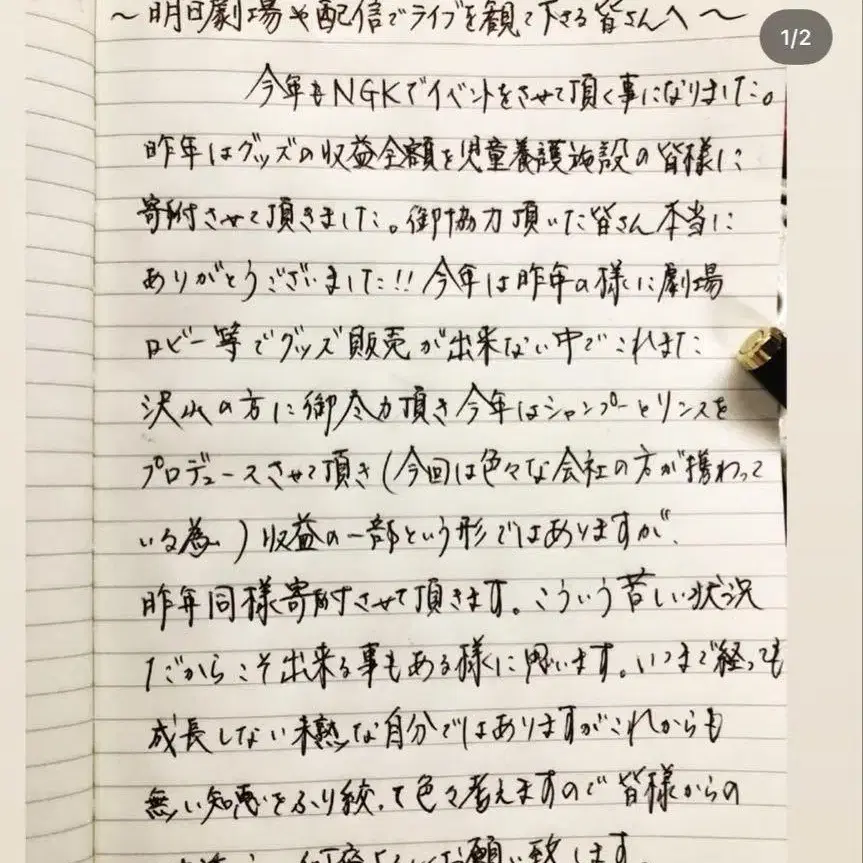 〜明日劇場や配信でライブを観て下さる皆さんへ〜
1/2
今年もNGKでイベントをさせて頂く事になりました。
昨年はグッズの収益全額を児童養護施設の皆様に
寄附させて頂きました。御協力頂いた皆さん本当に
ありがとうございました!!今年は昨年の様に劇場
ロビー等でグッズ販売が出来ない中でこれまた
沢山の方に御尽力頂き今年はシャンプーとリンスを
プロデュースさせて頂き(今回は色々な会社の方が携わって
いる為)収益の一部という形ではありますが、
昨年同様寄附させて頂きます。こういう苦しい状況
だからこそ出来る事もある様に思います。いつまで経っても
成長しない未熟な自分ではありますがこれからも
無い知恵をふり絞って色々考えますので皆様からの
お願い致します。